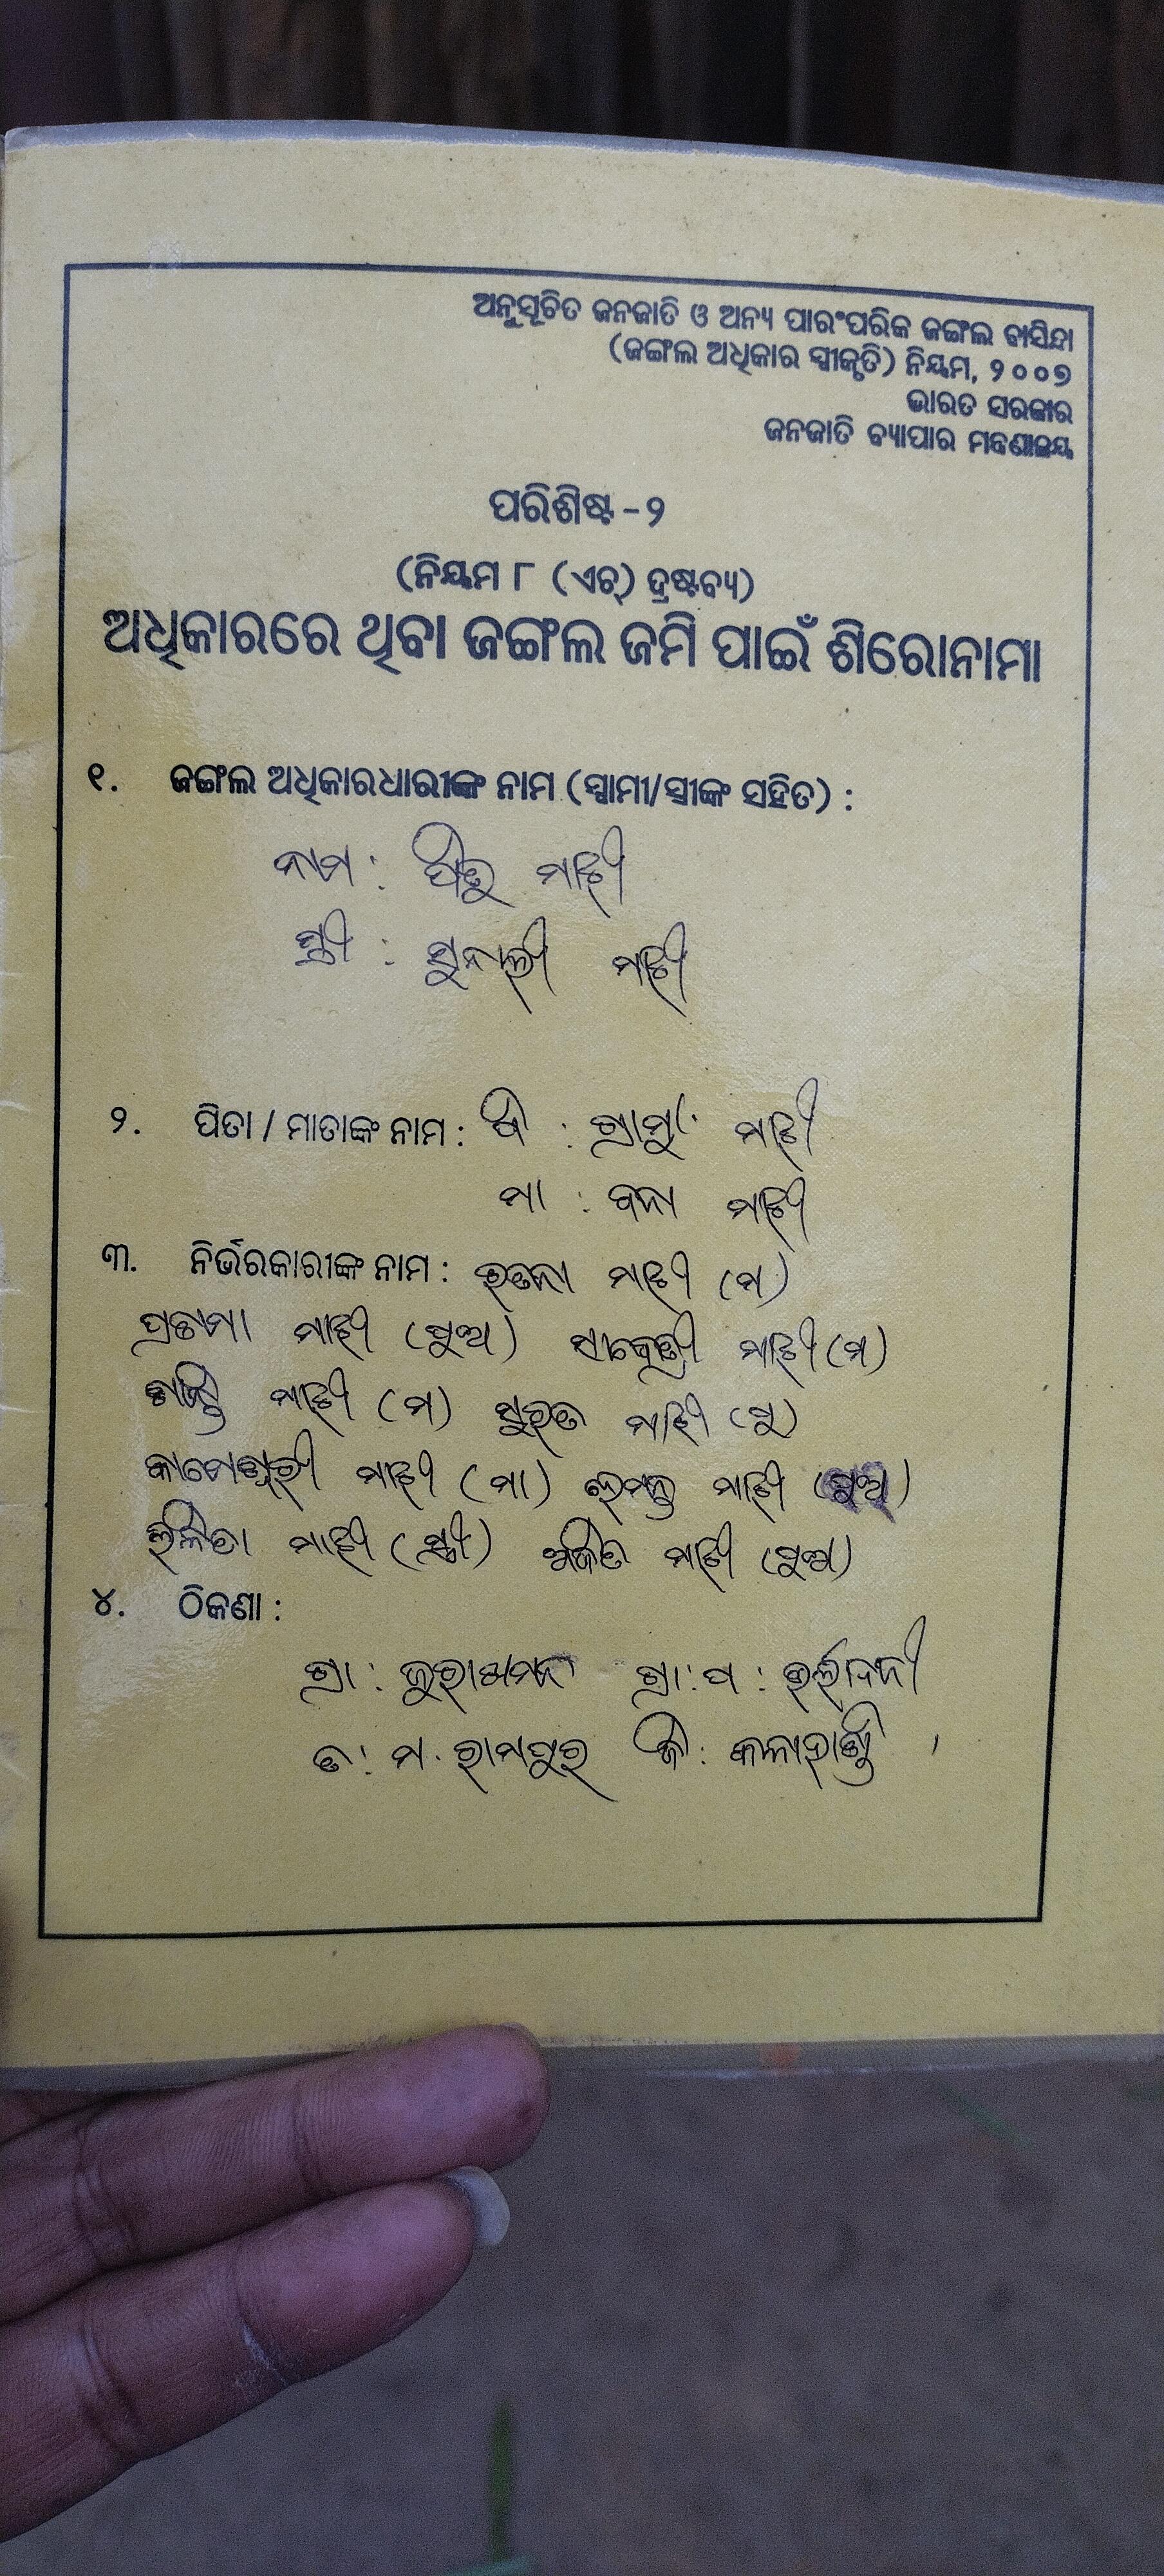 ଅନୁସୂଚିତ ଜନଜାତି ଓ ଅନ୍ୟ ପାରଂପରିକ ଜଙ୍ଗଲ ବାସିନ୍ଦା
(ଜଙ୍ଗଲ ଅଧିକାର ସ୍ୱୀକୃତି) ନିୟମ, ୨୦୦୭
ଭାରତ ସରକାର
ଜନଜାତି ବ୍ୟାପାର ମନ୍ତ୍ରଣାଳୟ
ପରିଶିଷ୍ଟ-୨
(ନିୟମ ୮ (ଏଚ୍) ଦ୍ରଷ୍ଟବ୍ୟ)
ଅଧିକାରରେ ଥିବା ଜଙ୍ଗଲ ଜମି ପାଇଁ ଶିରୋନାମା
୧. ଜଙ୍ଗଲ ଅଧିକାରଧାରୀଙ୍କ ନାମ (ସ୍ୱାମୀ/ସ୍ତ୍ରୀଙ୍କ ସହିତ) :
ନାମ : ମାଝୀ
ସ୍ତ୍ରୀ : ସୁନାଲୀ ମାଝୀ
୨. ପିତା / ମାତାଙ୍କ ନାମ : ପି : ମାଝୀ
ମା : ମାଝୀ
୩. ନିର୍ଭରକାରୀଙ୍କ ନାମ : ମାଝୀ (ମ)
ମାଝୀ (ପୁଅ) ମାଝୀ (ମ)
ମାଝୀ (ମ) ମାଝୀ (ପୁ)
କାମେଶ୍ୱରୀ ମାଝୀ (ମା) ହେମନ୍ତ ମାଝୀ (ପୁଅ)
ଲଳିତା ମାଝୀ (ସ୍ତ୍ରୀ) ଅଜିତ ମାଝୀ (ପୁଅ)
୪. ଠିକଣା :
ଗ୍ରା : ଗ୍ରା : ପ :
ତ : ମ. ରାମପୁର ଜି : କଳାହାଣ୍ଡି